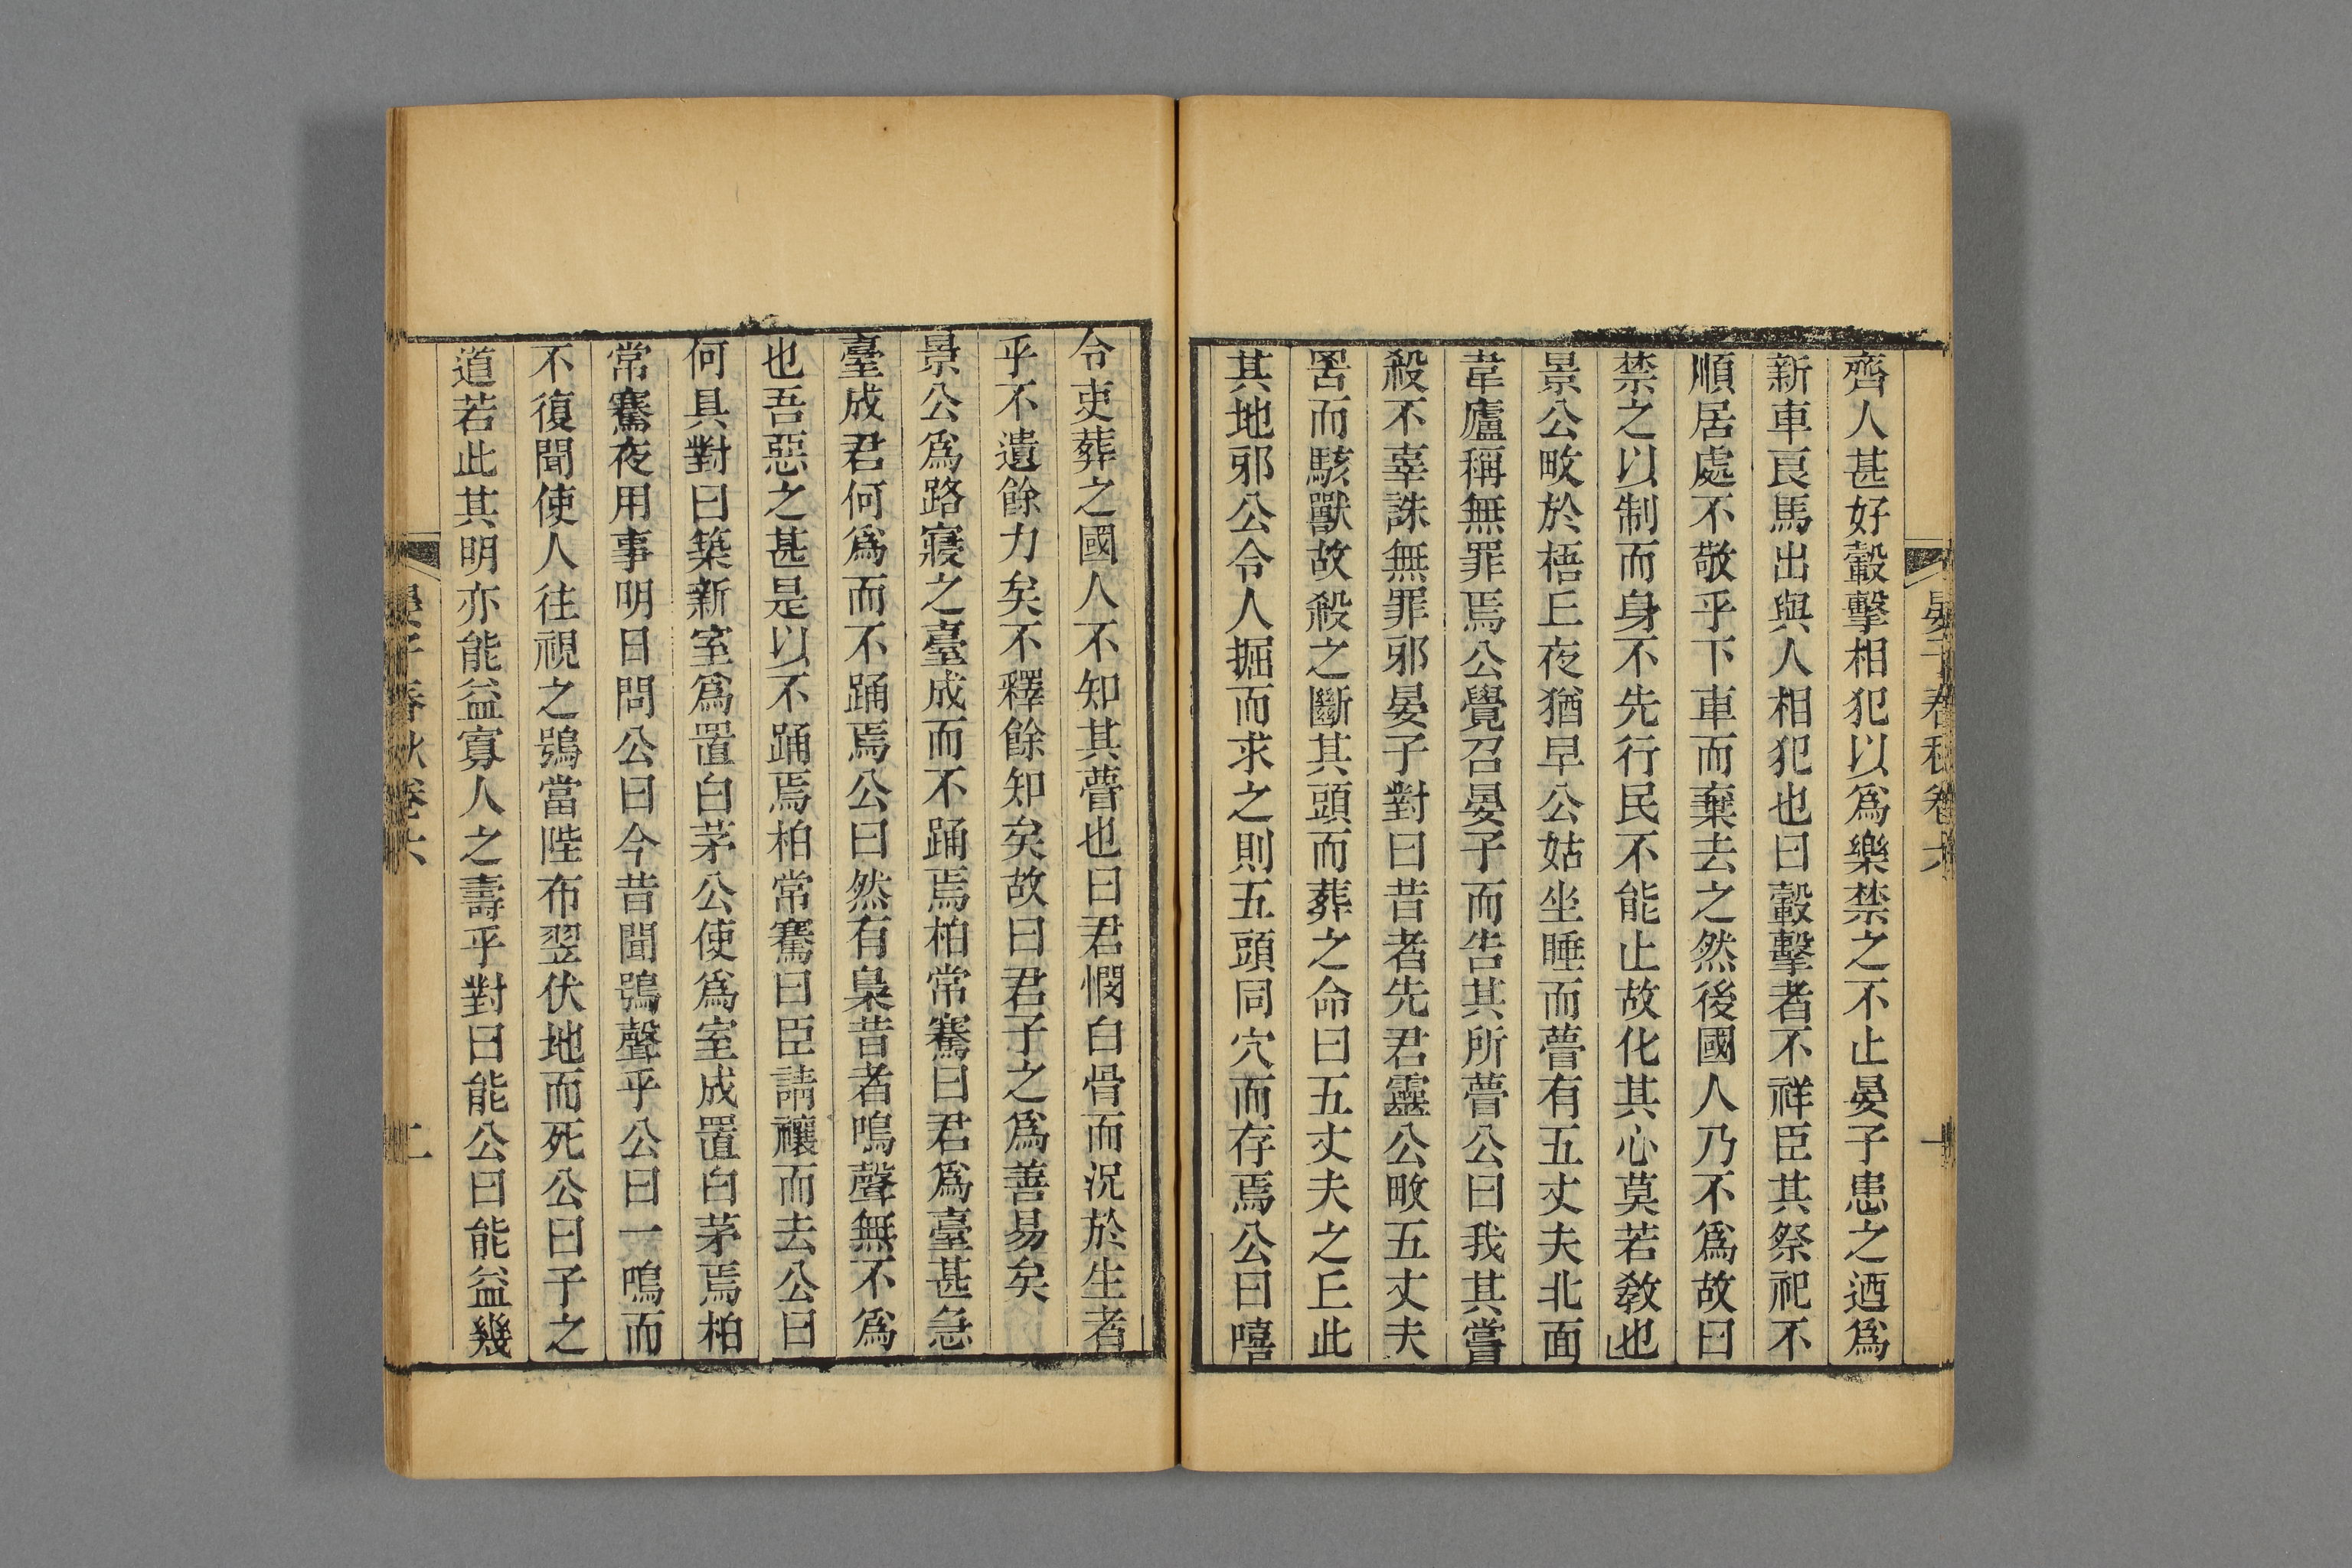 齊人甚好轂擊相犯以爲樂禁之不止晏子患之迺爲
新車良馬出與人相犯也曰轂擊者不祥臣其祭祀不
順居處不敬乎下車而棄去之然後國人乃不爲故曰
禁之以制而身不先行民不能止故化其心莫若教也
景公畋於梧丘夜猶早公姑坐睡而瞢有五丈夫北面
韋廬稱無罪焉公覺召晏子而告其所瞢公曰我其嘗
殺不辜誅無罪邪晏子對曰昔者先君靈公畋五丈夫
罟而駭獸故殺之斷其頭而葬之命曰五丈夫之丘此
其地邪公令人掘而求之則五頭同穴而存焉公曰嘻
晏子春秋卷六
令吏葬之國人不知其瞢也曰君憫白骨而況於生者
乎不遺餘力矣不釋餘知矣故曰君子之爲善易矣
景公爲路寢之臺成而不踊焉柏常騫曰君爲臺甚急
臺成君何爲而不踊焉公曰然有梟昔者鳴聲無不爲
也吾惡之甚是以不踊焉柏常騫曰臣請禳而去公曰
何具對曰築新室爲置白茅公使爲室成置白茅焉柏
常騫夜用事明日問公曰今昔聞鴞聲乎公曰一鳴而
不復聞使人往視之鴞當陛布翌伏地而死公曰子之
道若此其明亦能益寡人之壽乎對曰能公曰能益幾
晏子春秋卷六
二